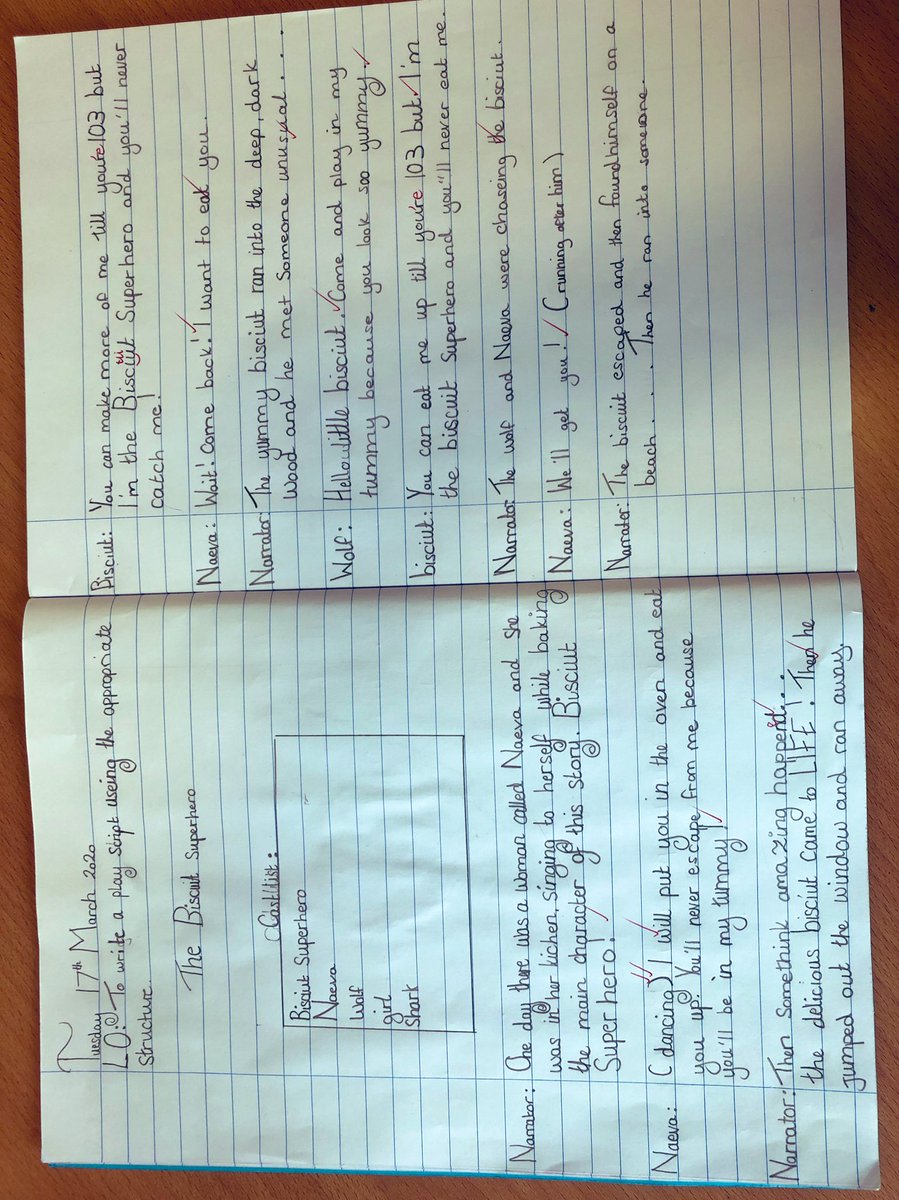 Tuesday 17th March 2020
L.O: To write a play script useing the appropriate
structure.
The Biscuit Superhero
Cast list:
Bisciut Superhero
Naeva
Wolf
girl
Shark
Narrator: One day there was a woman called Naeva and she
was in her kichen, singing to herself while baking
the main character of this story. Bisciut
Superhero!
Naeva: (dancing) I will put you in the oven and eat
you up. You'll never escape from me because
you'll be in my tummy!
Narrator: Then somethink amazing happend...
the delicious bisciut came to LIFE! Then he
jumped out the window and ran away.
Bisciut: You can make more of me till you're 103 but
I'm the Bisciut Superhero and you'll never
catch me!
Naeva: Wait! Come back! I want to eat you.
Narrator: The yummy bisciut ran into the deep, dark
wood and he met someone unusual...
Wolf: Hello little bisciut. Come and play in my
tummy because you look so yummy.
bisciut: You can eat me up till you're 103 but I'm
the biscuit Superhero and you'll never eat me.
Narrator: The wolf and Naeva were chaseing the bisciut.
Naeva: We'll get you! (running after him)
Narrator: The biscuit escaped and then found himself on a
beach... Then he ran into someone.